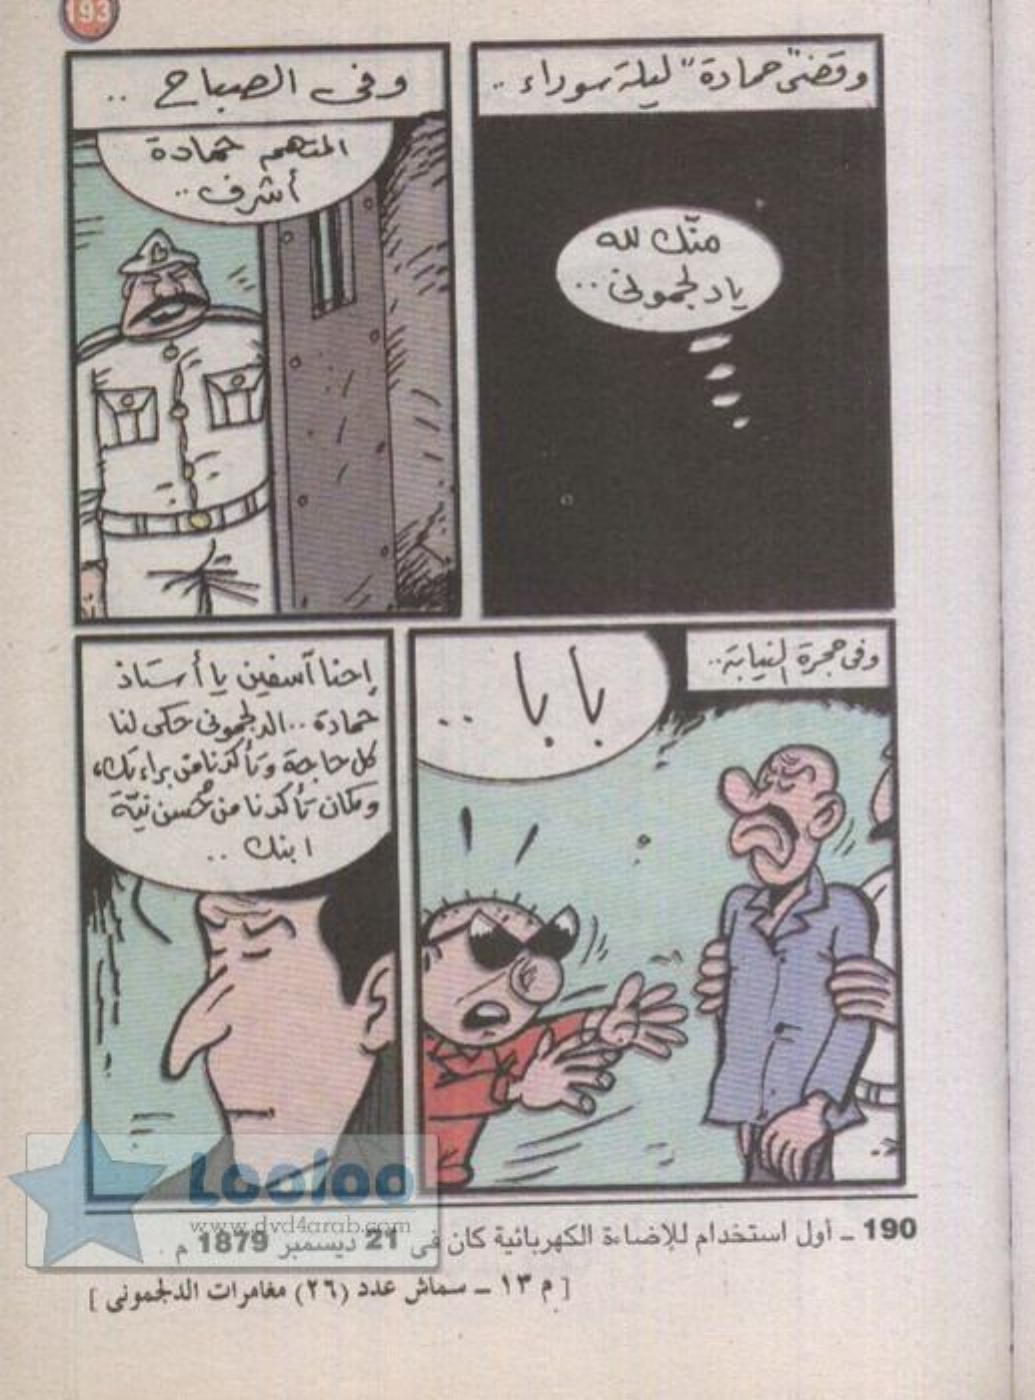 193
وقضى "حمادة" ليلة سوداء ..
منّك لله
يا دلجموني ..
وفى الصباح ..
المتهم حمادة
أشرف ..
وفى حجرة النيابة ..
بابا ..
إحنا آسفين يا أستاذ
حمادة .. الدلجمونى حكى لنا
كل حاجة وتأكدنا من براءتك،
وكمان تأكدنا من حُسن نيّة
ابنك ..
190 ـ أول استخدام للإضاءة الكهربائية كان فى 21 ديسمبر 1879 م .
[ م ١٣ ـ سماش عدد (٢٦) مغامرات الدلجمونى ]
Looloo
www.dvd4arab.com